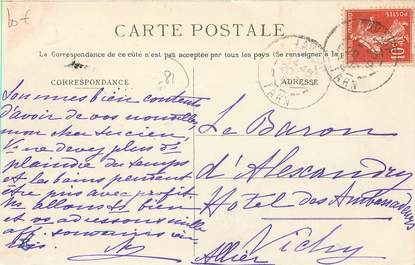 10 €
CARTE POSTALE
La Correspondance de ce côté n'est pas acceptée par tous les pays (Se renseigner à la
CORRESPONDANCE
ADRESSE
81
TARN
TARN
POSTES
10
Sommes bien contents
d'avoir de vos nouvelles,
mon cher Lucien,
Vs ne devez plus vs
plaindre du temps
et les bains peuvent
être pris avec profit.
Ns allons bien
et vs adressons mille
aff. souvenirs
Le Baron
d'Alexandry
Hotel des Ambassadeurs
Vichy
Allier